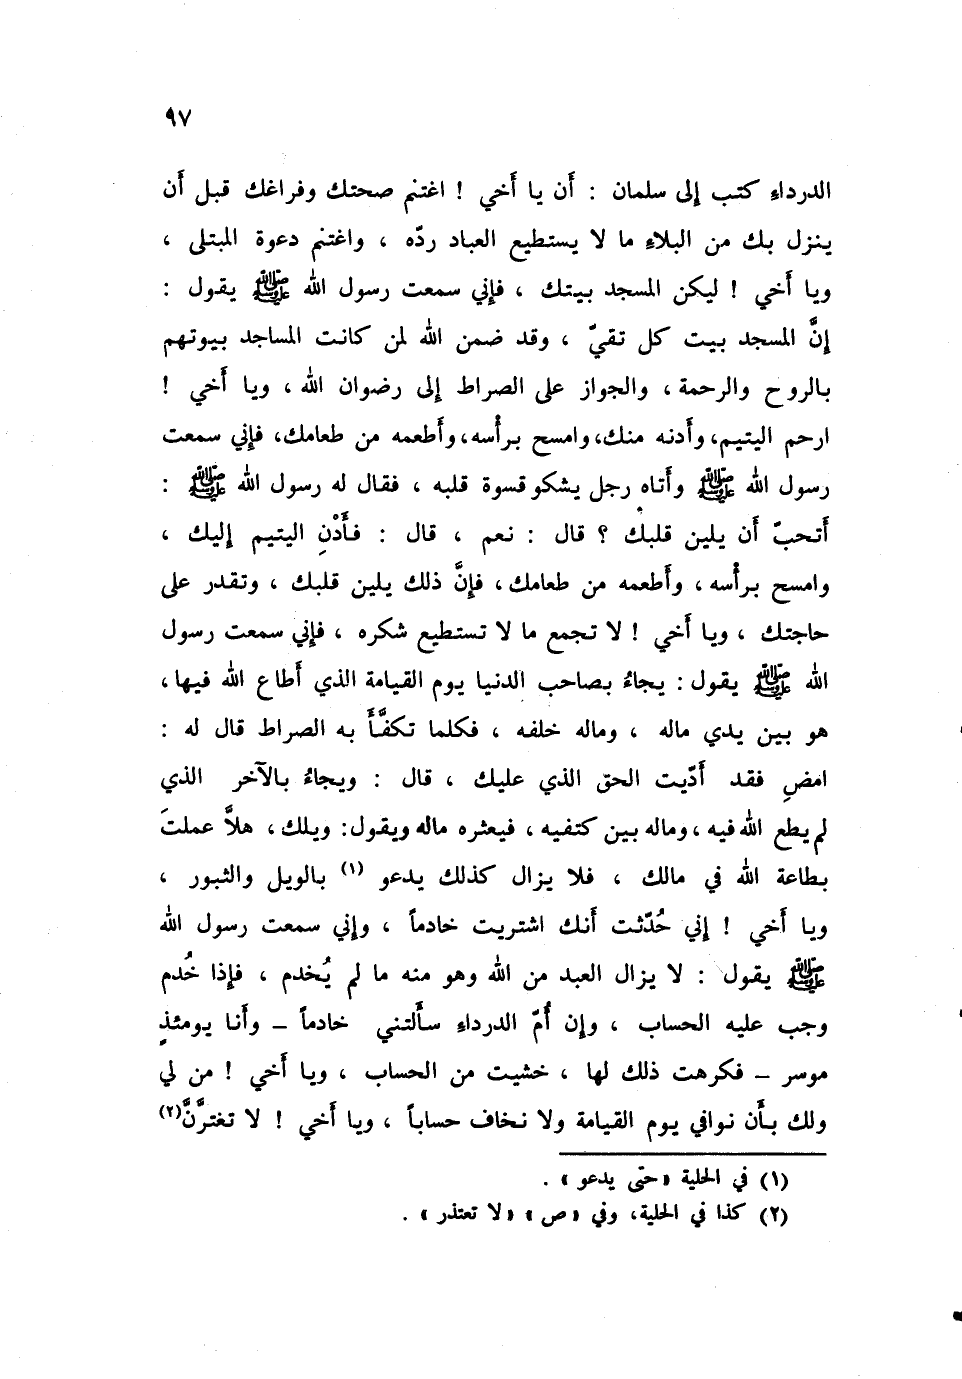 ٩٧
الدرداءِ كتب إلى سلمان : أَن يا أَخي ! اغتنم صحتك وفراغك قبل أَن
ينزل بك من البلاءِ ما لا يستطيع العباد ردّه ، واغتنم دعوة المبتلى ،
ويا أَخي ! ليكن المسجد بيتك ، فإني سمعت رسول الله ﷺ يقول :
إنَّ المسجد بيت كل تقيّ ، وقد ضمن الله لمن كانت المساجد بيوتهم
بالروح والرحمة ، والجواز على الصراط إلى رضوان الله ، ويا أَخي !
ارحم اليتيم، وأَدنه منك، وامسح برأْسه، وأَطعمه من طعامك، فإني سمعت
رسول الله ﷺ وأَتاه رجل يشكو قسوة قلبه ، فقال له رسول الله ﷺ :
أَتحبّ أَن يلين قلبك ؟ قال : نعم ، قال : فأَدْنِ اليتيم إليك ،
وامسح برأْسه ، وأَطعمه من طعامك ، فإنَّ ذلك يلين قلبك ، وتقدر على
حاجتك ، ويا أَخي ! لا تجمع ما لا تستطيع شكره ، فإني سمعت رسول
الله ﷺ يقول : يجاءُ بصاحب الدنيا يوم القيامة الذي أَطاع الله فيها ،
هو بين يدي ماله ، وماله خلفه ، فكلما تكفَّأَ به الصراط قال له :
امضِ فقد أَدّيت الحق الذي عليك ، قال : ويجاءُ بالآخر الذي
لم يطع الله فيه ، وماله بين كتفيه ، فيعثره ماله ويقول: ويلك ، هلاَّ عملتَ
بطاعة الله في مالك ، فلا يزال كذلك يدعو (١) بالويل والثبور ،
ويا أَخي ! إني حُدّثت أَنك اشتريت خادماً ، وإني سمعت رسول الله
ﷺ يقول : لا يزال العبد من الله وهو منه ما لم يُخدم ، فإذا خُدم
وجب عليه الحساب ، وإن أُمّ الدرداءِ سأَلتني خادماً – وأَنا يومئذٍ
موسر – فكرهت ذلك لها ، خشيت من الحساب ، ويا أَخي ! من لي
ولك بأَن نوافي يوم القيامة ولا نخاف حساباً ، ويا أَخي ! لا تغترَّنَّ(٢)
(١) في الحلية «حتى يدعو» .
(٢) كذا في الحلية، وفي «ص» «لا تعتذر» .